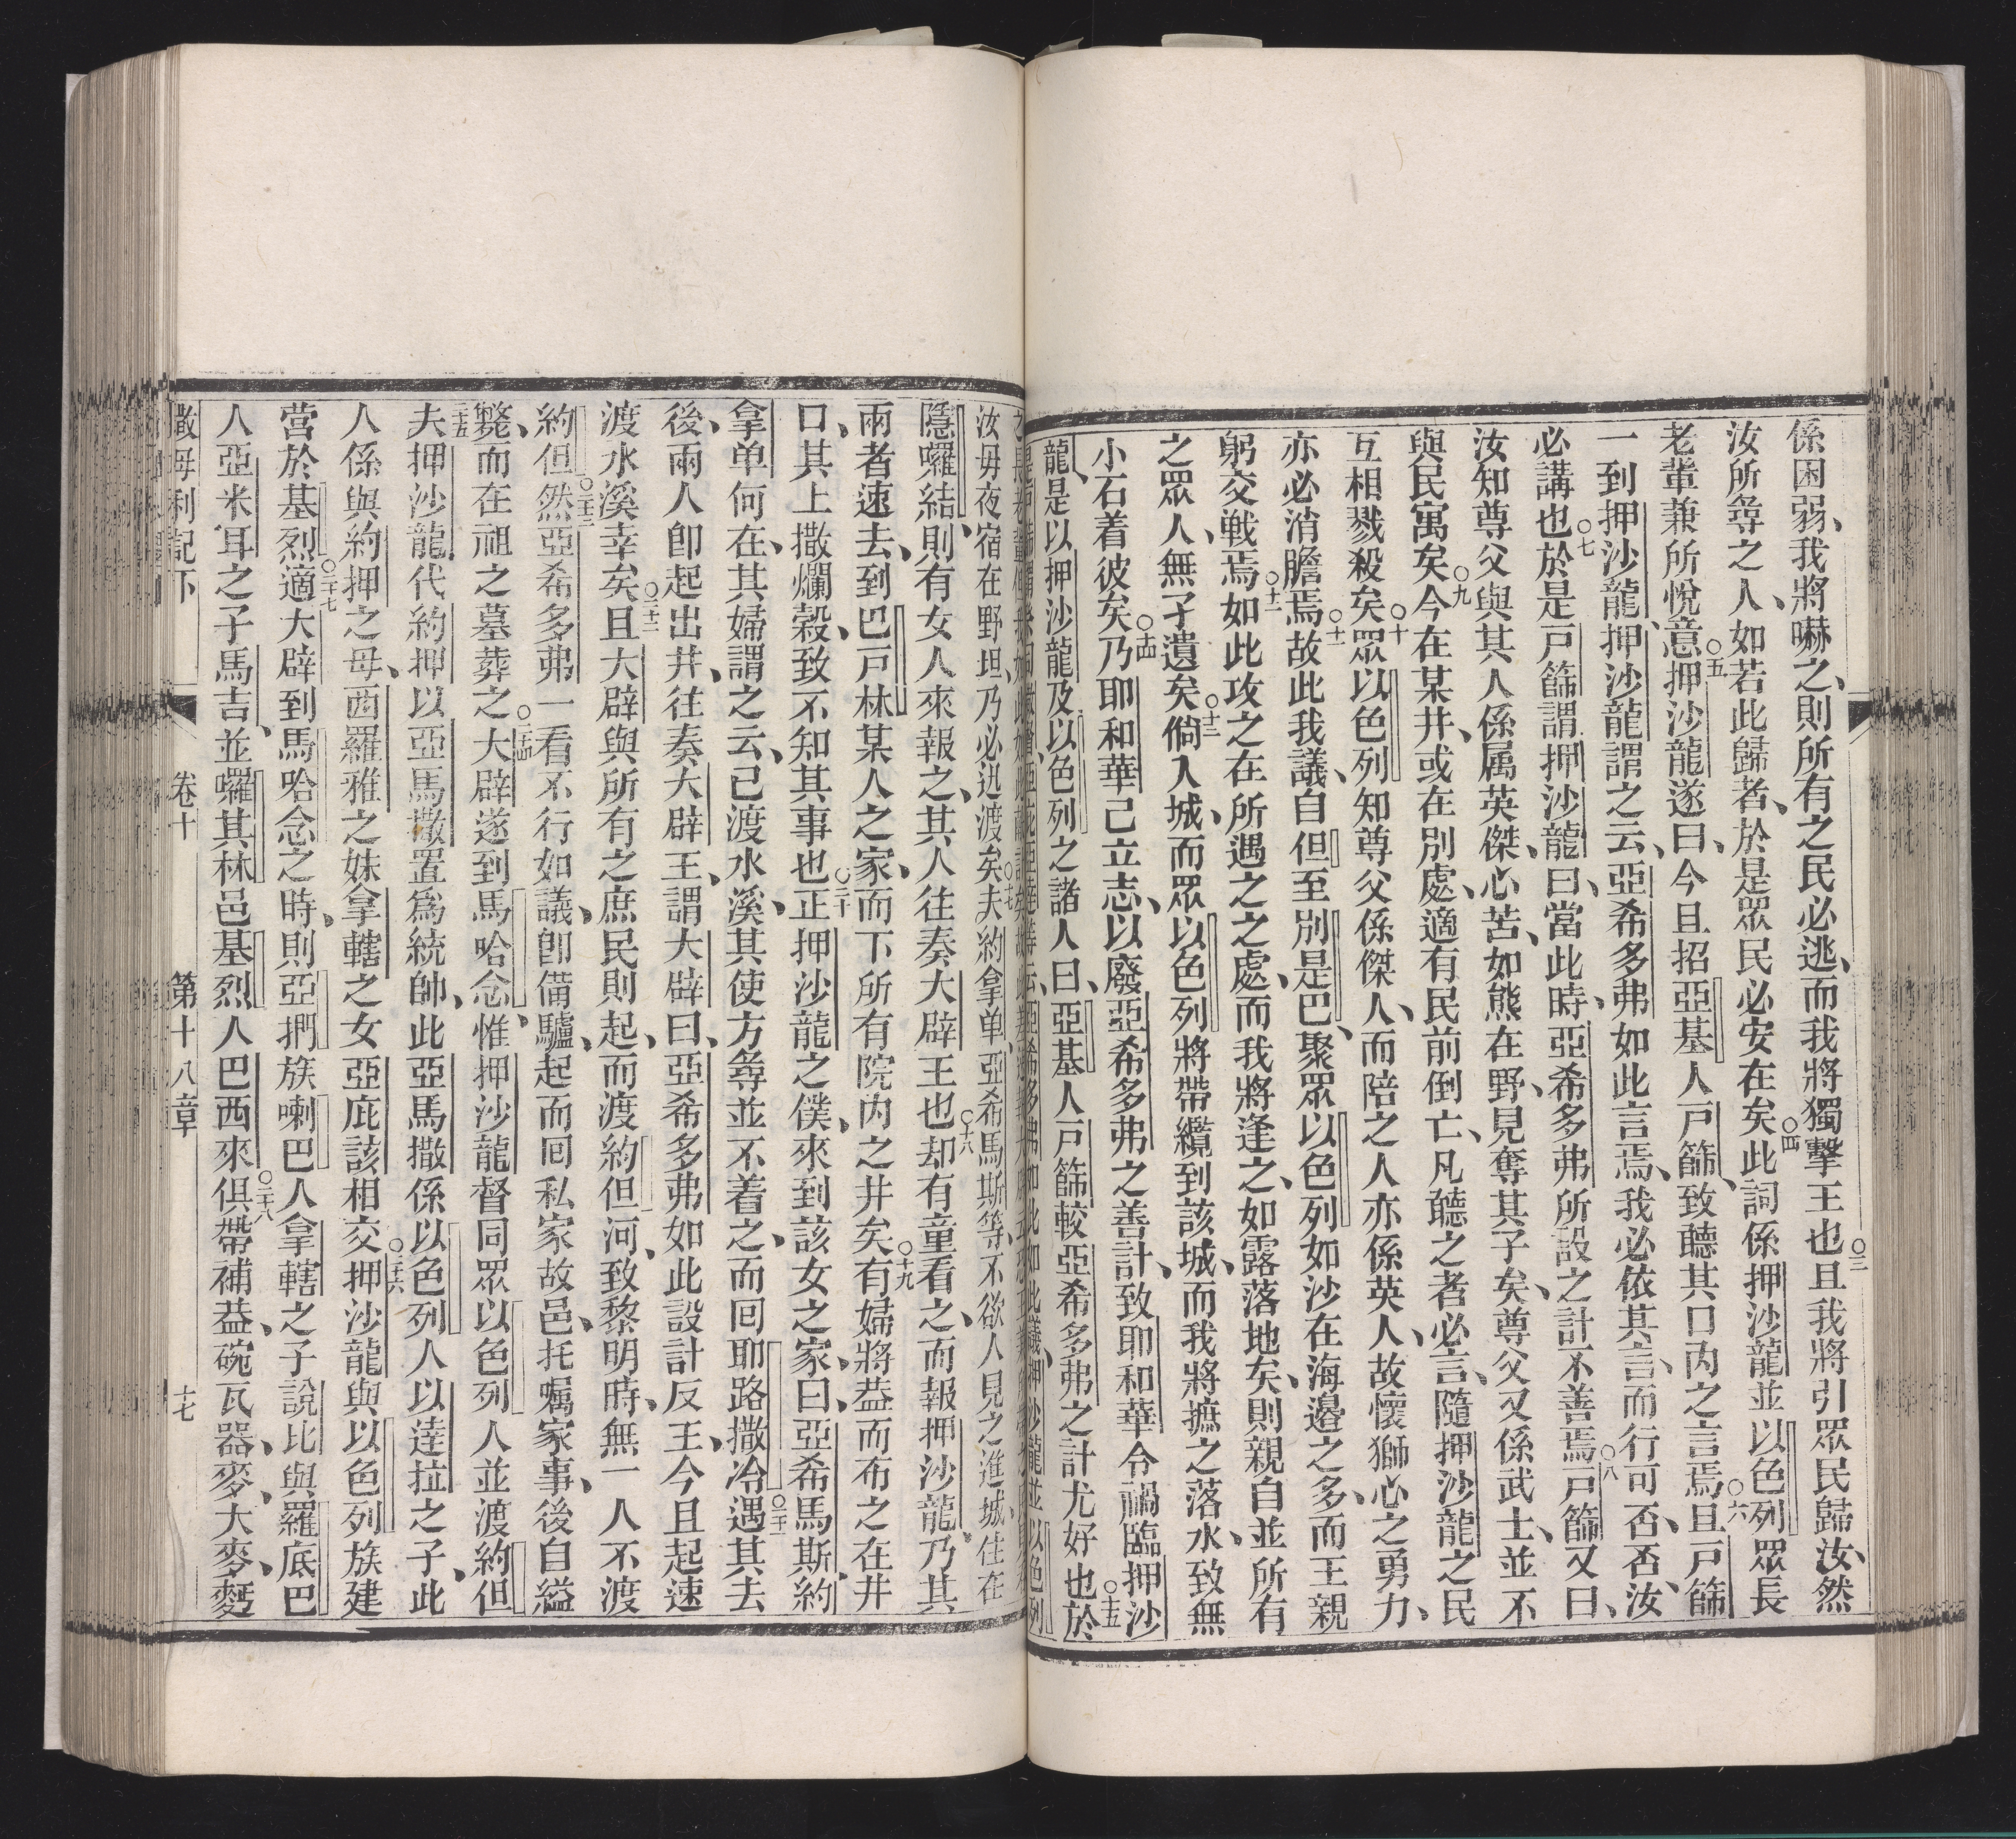 係困弱、我將嚇之、則所有之民必逃、而我將獨擊王也○三且我將引眾民歸汝、然
汝所尋之人、如若此歸者、於是眾民必安在矣○四此詞係押沙龍並以色列眾長
老輩兼所悅意○五押沙龍遂曰、今且招亞基人戶篩、致聽其口內之言焉○六且戶篩
一到押沙龍、押沙龍謂之云、亞希多弗如此言焉、我必依其言、而行可否、否、汝
必講也○七於是戶篩謂押沙龍曰、當此時、亞希多弗所設之計不善焉○八戶篩又曰、
汝知尊父與其人係属英傑、心苦、如熊在野、見奪其子矣、尊父又係武士、並不
與民寓矣○九今在某井、或在別處、適有民前倒亡、凡聽之者必言、隨押沙龍之民
互相戮殺矣○十眾以色列知尊父係傑人、而陪之人亦係英人、故懷獅心之勇力、
亦必消膽焉○十一故此我議、自但至別是巴、聚眾以色列如沙在海邊之多、而王親
躬交戰焉○十二如此攻之在所遇之之處、而我將逢之、如露落地矣、則親自並所有
之眾人、無孑遺矣○十三倘入城、而眾以色列將帶纜到該城、而我將摭之落水、致無
小石着彼矣○十四乃耶和華己立志、以廢亞希多弗之善計、致耶和華令禍臨押沙
龍、是以押沙龍及以色列之諸人曰、亞基人戶篩較亞希多弗之計尤好也○十五於
汝毋夜宿在野坦、乃必迅渡矣○十七夫約拿单、亞希馬斯等、不欲人見之進城、住在
隱囉結、則有女人來報之、其人往奏大辟王也○十八却有童看之、而報押沙龍、乃其
兩者速去、到巴戶林某人之家、而下所有院內之井矣○十九有婦將葢而布之在井
口、其上撒爛穀、致不知其事也○二十正押沙龍之僕、來到該女之家、曰、亞希馬斯、約
拿单何在、其婦謂之云、己渡水溪、其使方尋並不着之、而囘耶路撒冷○二十一遇其去
後、兩人卽起出井、往奏大辟王、謂大辟曰、亞希多弗如此設計反王、今且起速
渡水溪幸矣○二十二且大辟與所有之庶民則起、而渡約但河、致黎明時、無一人不渡
約但○二十三然亞希多弗一看不行如議、卽備驢、起而囘私家故邑、托嘱家事、後自縊
斃、而在祖之墓葬之○二十四大辟遂到馬哈念、惟押沙龍督同眾以色列人並渡約但
二十五夫押沙龍代約押以亞馬撒置爲統帥、此亞馬撒係以色列人以達拉之子、此
人係與約押之母、西羅雅之妹拿轄之女亞庇該相交○二十六押沙龍與以色列族建
營於基烈○二十七適大辟到馬哈念之時、則亞捫族喇巴人拿轄之子說比與羅底巴
人亞米耳之子馬吉、並囉其林邑基烈人巴西來○二十八俱帶補葢、碗瓦器、麥、大麥、麪
撒母利記下 卷十 第十八章 十七